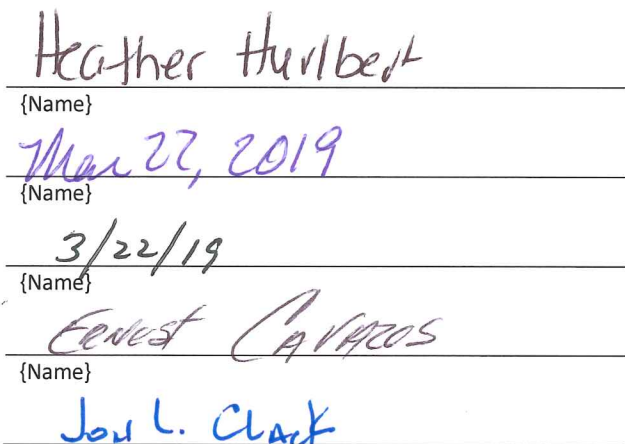 Heather Hurlbert
{Name}
Mar 22, 2019
{Name}
3/22/19
{Name}
Ernest Cavazos
{Name}
Jon L. Clark